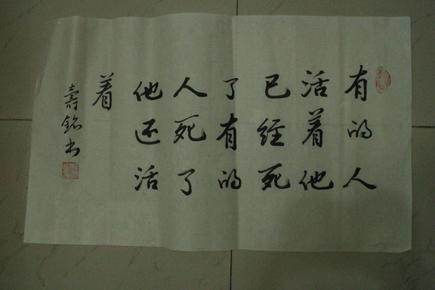 有的人
活着他
已经死
了有的
人死了
他还活
着
壽铭书